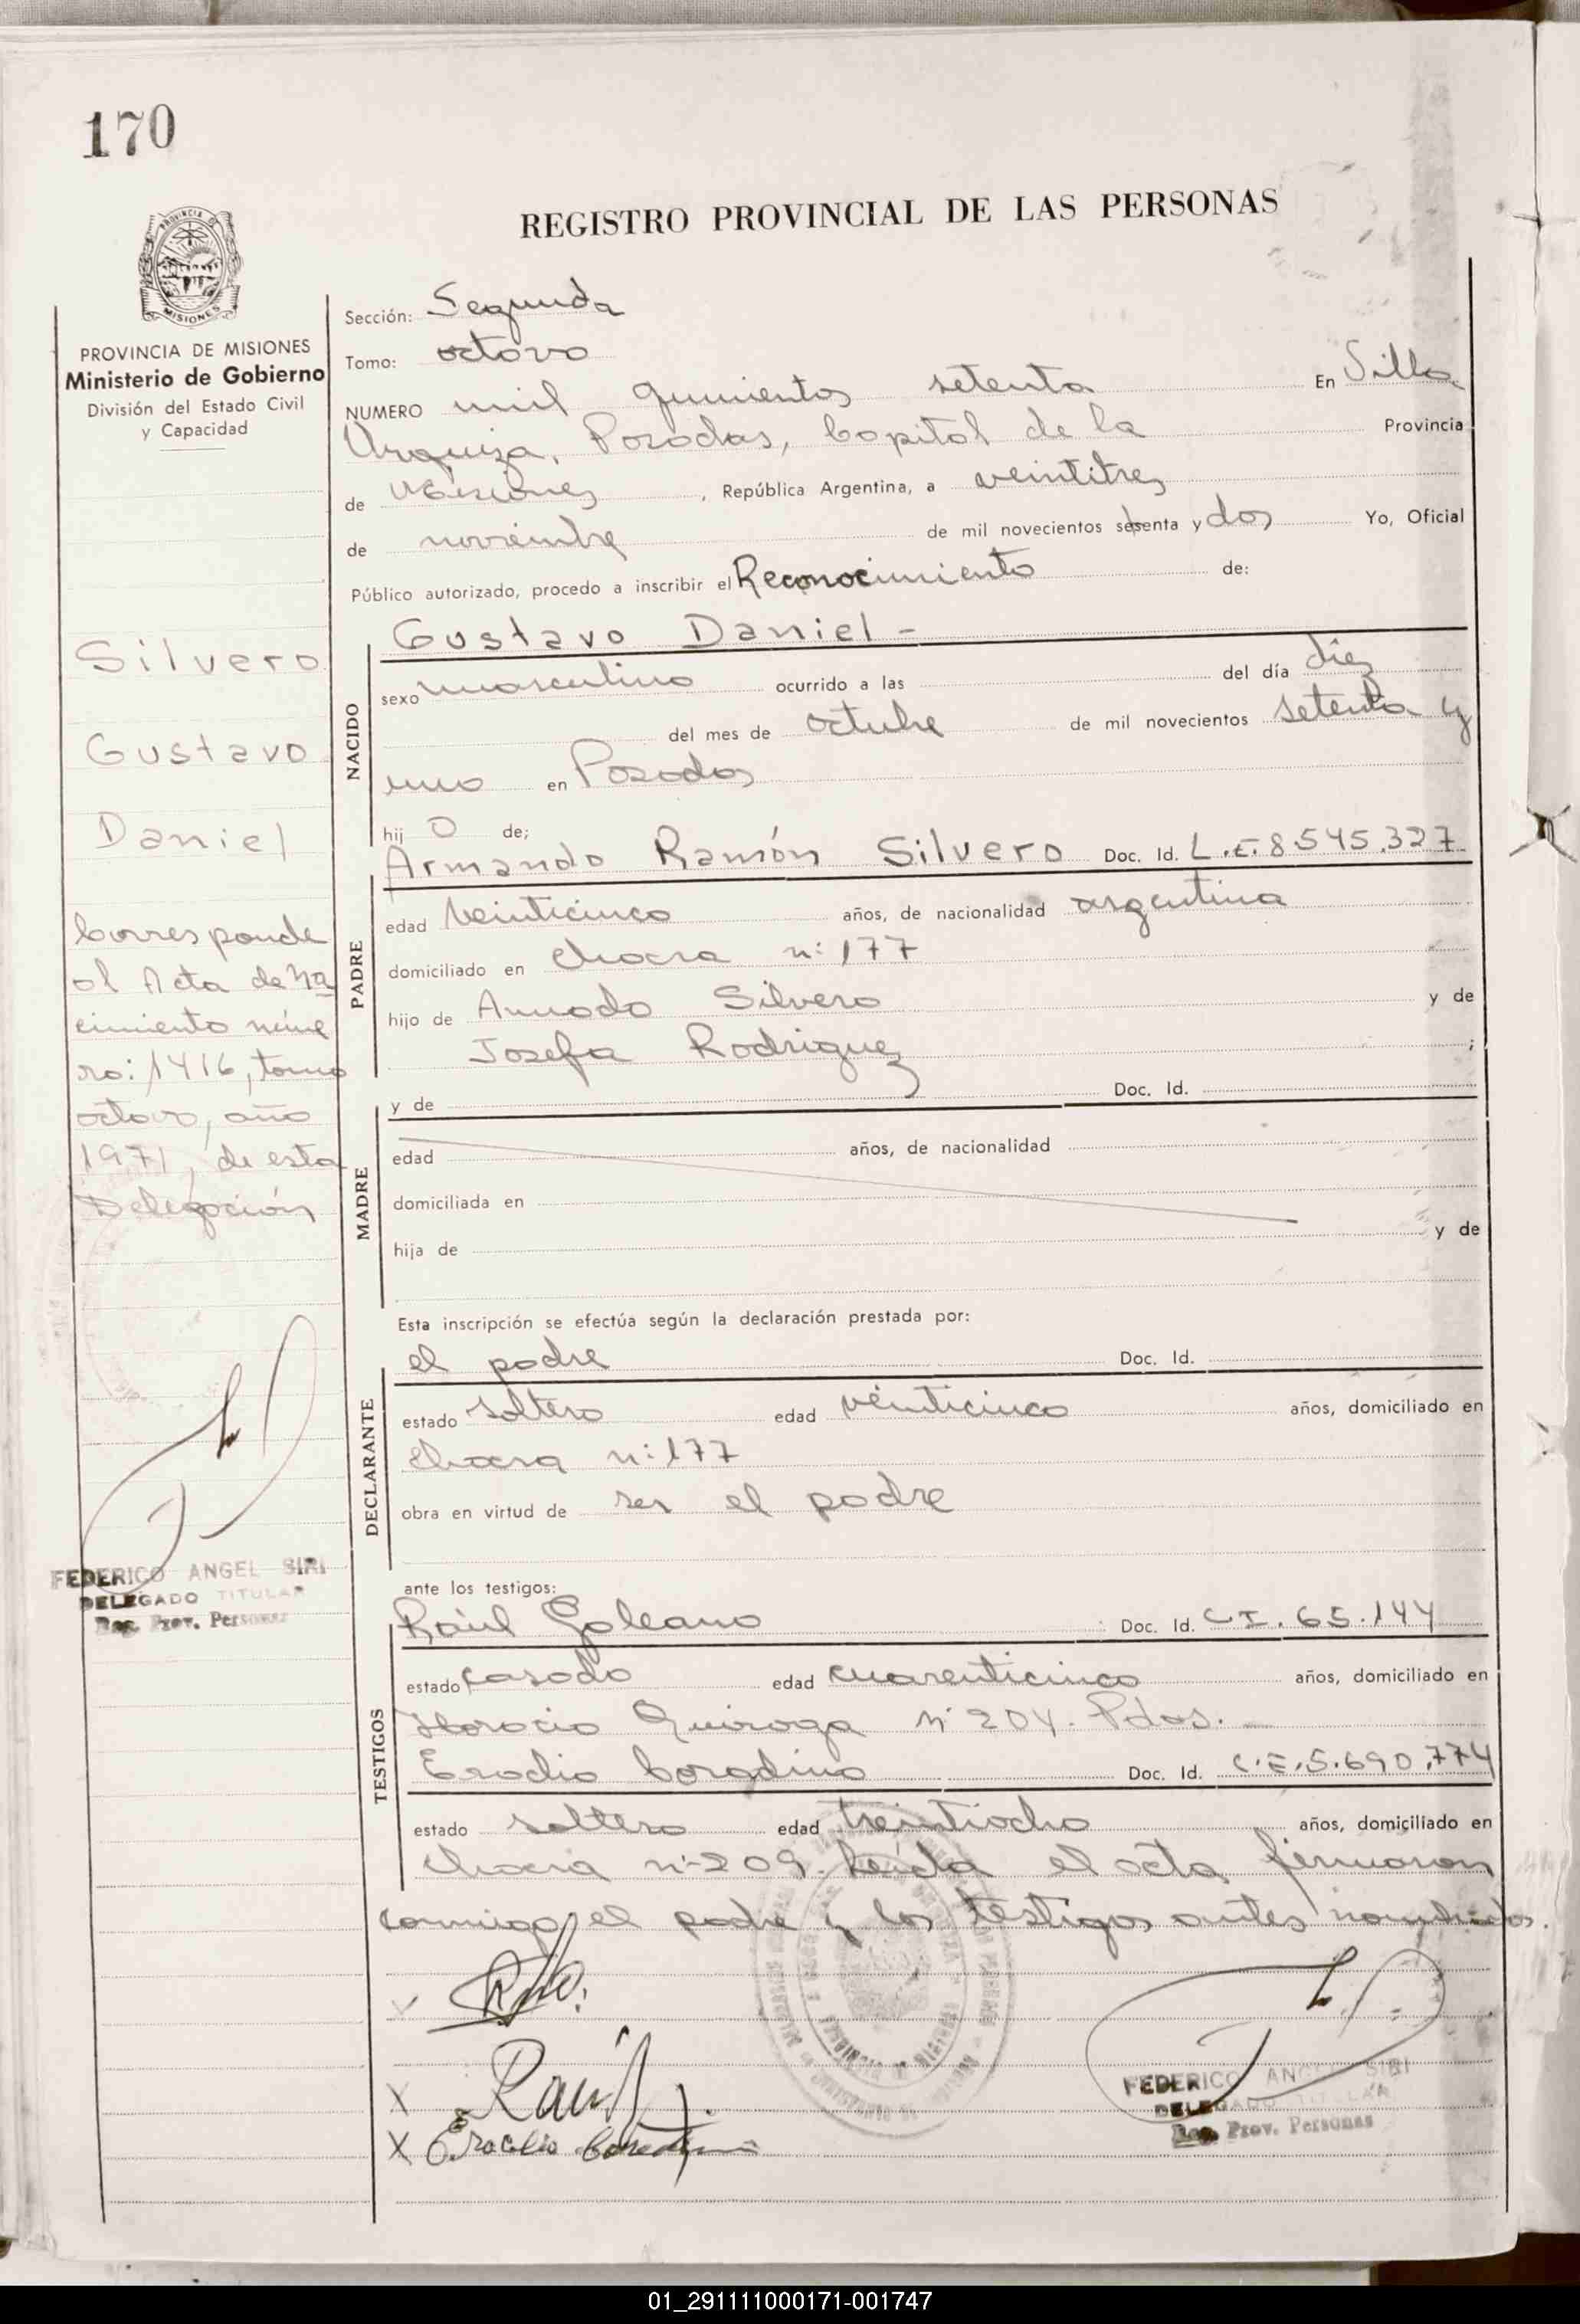 170
REGISTRO PROVINCIAL DE LAS PERSONAS
PROVINCIA DE MISIONES
Ministerio de Gobierno
División del Estado Civil
y Capacidad
Silvero
Gustavo
Daniel
Corresponde
al Acta de Na
cimiento núme
ro: 1416, tomo
octavo, año
1971, de esta
Delegación
FEDERICO ANGEL SIRI
DELEGADO TITULAR
Reg. Prov. Personas
Sección: Segunda
Tomo: octavo
NUMERO mil quinientos setenta En Villa
Urquiza, Posadas, Capital de la Provincia
de Misiones, República Argentina, a veintitres
de noviembre de mil novecientos setenta y dos Yo, Oficial
Público autorizado, procedo a inscribir el Reconocimiento de:
Gustavo Daniel -
NACIDO
sexo masculino ocurrido a las del día diez
del mes de octubre de mil novecientos setenta y
uno en Posadas
hij o de;
Armando Ramón Silvero Doc. Id. L.E. 8.545.327
PADRE
edad veinticinco años, de nacionalidad argentina
domiciliado en chacra n: 177
hijo de Armado Silvero y de
Josefa Rodriguez ;
y de Doc. Id.
MADRE
edad años, de nacionalidad
domiciliada en
hija de y de
Esta inscripción se efectúa según la declaración prestada por:
el padre Doc. Id.
DECLARANTE
estado soltero edad veinticinco años, domiciliado en
chacra n: 177
obra en virtud de ser el padre
ante los testigos:
Raúl Galeano Doc. Id. C.I. 65.144
TESTIGOS
estado casado edad cuarenticinco años, domiciliado en
Horacio Quiroga n: 204. Pdas.
Erodio Coradino Doc. Id. L.E. 5.690.774
estado soltero edad treintiocho años, domiciliado en
chacra n: 209. Leída el acta firmaron
conmigo, el padre y los testigos antes nombrados.
X Raúl
X
FEDERICO ANGEL SIRI
DELEGADO TITULAR
Reg. Prov. Personas
01_291111000171-001747